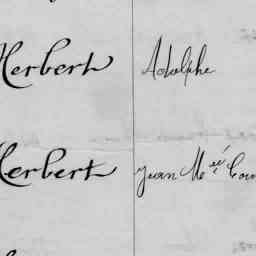 Herbert Adolphe
Herbert Jean M